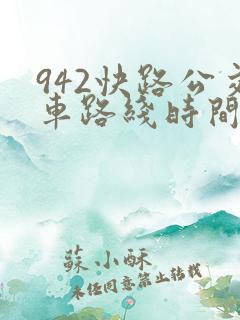 942快路公交
車路綫時間
蘇小酥
未经同意禁止转载